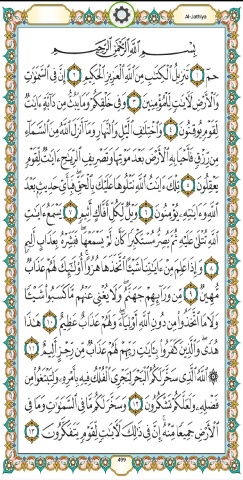 Al-Jathiya
بِسْمِ اللَّهِ الرَّحْمَٰنِ الرَّحِيمِ
حمٓ ١ تَنزِيلُ الْكِتَٰبِ مِنَ اللَّهِ الْعَزِيزِ الْحَكِيمِ ٢ إِنَّ فِي السَّمَٰوَٰتِ
وَالْأَرْضِ لَأٓيَٰتٍ لِّلْمُؤْمِنِينَ ٣ وَفِي خَلْقِكُمْ وَمَا يَبُثُّ مِن دَآبَّةٍ ءَايَٰتٌ
لِّقَوْمٍ يُوقِنُونَ ٤ وَاخْتِلَٰفِ الَّيْلِ وَالنَّهَارِ وَمَآ أَنزَلَ اللَّهُ مِنَ السَّمَآءِ
مِن رِّزْقٍ فَأَحْيَا بِهِ الْأَرْضَ بَعْدَ مَوْتِهَا وَتَصْرِيفِ الرِّيَٰحِ ءَايَٰتٌ لِّقَوْمٍ
يَعْقِلُونَ ٥ تِلْكَ ءَايَٰتُ اللَّهِ نَتْلُوهَا عَلَيْكَ بِالْحَقِّ فَبِأَيِّ حَدِيثٍ بَعْدَ
اللَّهِ وَءَايَٰتِهِ يُؤْمِنُونَ ٦ وَيْلٌ لِّكُلِّ أَفَّاكٍ أَثِيمٍ ٧ يَسْمَعُ ءَايَٰتِ
اللَّهِ تُتْلَىٰ عَلَيْهِ ثُمَّ يُصِرُّ مُسْتَكْبِرًا كَأَن لَّمْ يَسْمَعْهَا فَبَشِّرْهُ بِعَذَابٍ أَلِيمٍ
٨ وَإِذَا عَلِمَ مِنْ ءَايَٰتِنَا شَيْـًٔا اتَّخَذَهَا هُزُوًا أُو۟لَٰٓئِكَ لَهُمْ عَذَابٌ
مُّهِينٌ ٩ مِّن وَرَآئِهِمْ جَهَنَّمُ وَلَا يُغْنِي عَنْهُم مَّا كَسَبُوا۟ شَيْـًٔا
وَلَا مَا اتَّخَذُوا۟ مِن دُونِ اللَّهِ أَوْلِيَآءَ وَلَهُمْ عَذَابٌ عَظِيمٌ ١٠ هَٰذَا
هُدًى وَالَّذِينَ كَفَرُوا۟ بِـَٔايَٰتِ رَبِّهِمْ لَهُمْ عَذَابٌ مِّن رِّجْزٍ أَلِيمٌ ١١
۞ اللَّهُ الَّذِي سَخَّرَ لَكُمُ الْبَحْرَ لِتَجْرِيَ الْفُلْكُ فِيهِ بِأَمْرِهِ وَلِتَبْتَغُوا۟ مِن
فَضْلِهِ وَلَعَلَّكُمْ تَشْكُرُونَ ١٢ وَسَخَّرَ لَكُم مَّا فِي السَّمَٰوَٰتِ وَمَا فِي
الْأَرْضِ جَمِيعًا مِّنْهُ إِنَّ فِي ذَٰلِكَ لَأٓيَٰتٍ لِّقَوْمٍ يَتَفَكَّرُونَ ١٣
499